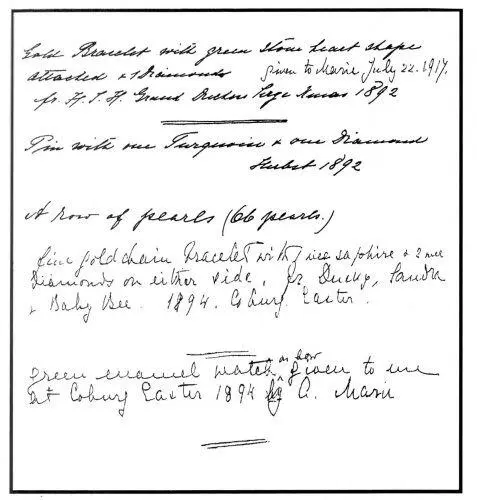 Gold Bracelet with green stone heart shape
attached & 2 Diamonds given to Marie July 22. 1917.
fr. H. I. H. Grand Duchess Serge Xmas 1892
Pin with one Turquoise & one Diamond
Herbst 1892
A row of pearls (66 pearls.)
fine gold chain bracelet with 1 nice saphire & 2 nice
Diamonds on either side, fr. Ducky, Sandra
& Baby Bee. 1894. Coburg. Easter.
green enamel watch & on bow given to me
at Coburg Easter 1894 by A. Marie